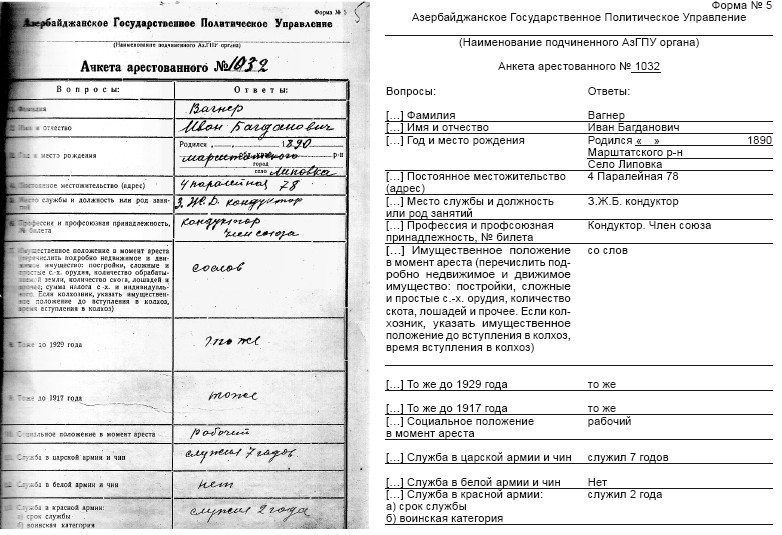 Форма № 5
5
Азербайджанское Государственное Политическое Управление
(Наименование подчиненного АзГПУ органа)
Анкета арестованного № 1032
Вопросы:
Ответы:
1. Фамилия
Вагнер
2. Имя и отчество
Иван Багданович
3. Год и место рождения
Родился 1890
р-н
город
село Липовка
4. Постоянное местожительство (адрес)
4 паралейная 78
5. Место службы и должность или род заня-
тий
З.Ж.Б. кондуктор
6. Профессия и профсоюзная принадлежность,
№ билета
кондуктор
член союза
7. Имущественное положение в момент ареста
(перечислить подробно недвижимое и дви-
жимое имущество: постройки, сложные и
простые с.-х. орудия, количество обрабаты-
ваемой земли, количество скота, лошадей и
прочее; сумма налога с.-х. и индивидуаль-
ного. Если колхозник, указать имуществен-
ное положение до вступления в колхоз,
время вступления в колхоз)
со слов
8. Тоже до 1929 года
тоже
9. Тоже до 1917 года
тоже
10. Социальное положение в момент ареста
рабочий
11. Служба в царской армии и чин
служил 7 годов
12. Служба в белой армии и чин
нет
13. Служба в красной армии:
а) срок службы
б) воинская категория
служил 2 года
Форма № 5
Азербайджанское Государственное Политическое Управление
(Наименование подчиненного АзГПУ органа)
Анкета арестованного № 1032
Вопросы:
Ответы:
[...] Фамилия
Вагнер
[...] Имя и отчество
Иван Багданович
[...] Год и место рождения
Родился « » 1890
Марштатского р-н
Село Липовка
[...] Постоянное местожительство
(адрес)
4 Паралейная 78
[...] Место службы и должность
или род занятий
З.Ж.Б. кондуктор
[...] Профессия и профсоюзная
принадлежность, № билета
Кондуктор. Член союза
[...] Имущественное положение
в момент ареста (перечислить под-
робно недвижимое и движимое
имущество: постройки, сложные
и простые с.-х. орудия, количество
скота, лошадей и прочее. Если кол-
хозник, указать имущественное
положение до вступления в колхоз,
время вступления в колхоз)
со слов
[...] То же до 1929 года
то же
[...] То же до 1917 года
то же
[...] Социальное положение
в момент ареста
рабочий
[...] Служба в царской армии и чин
служил 7 годов
[...] Служба в белой армии и чин
Нет
[...] Служба в красной армии:
а) срок службы
б) воинская категория
служил 2 года